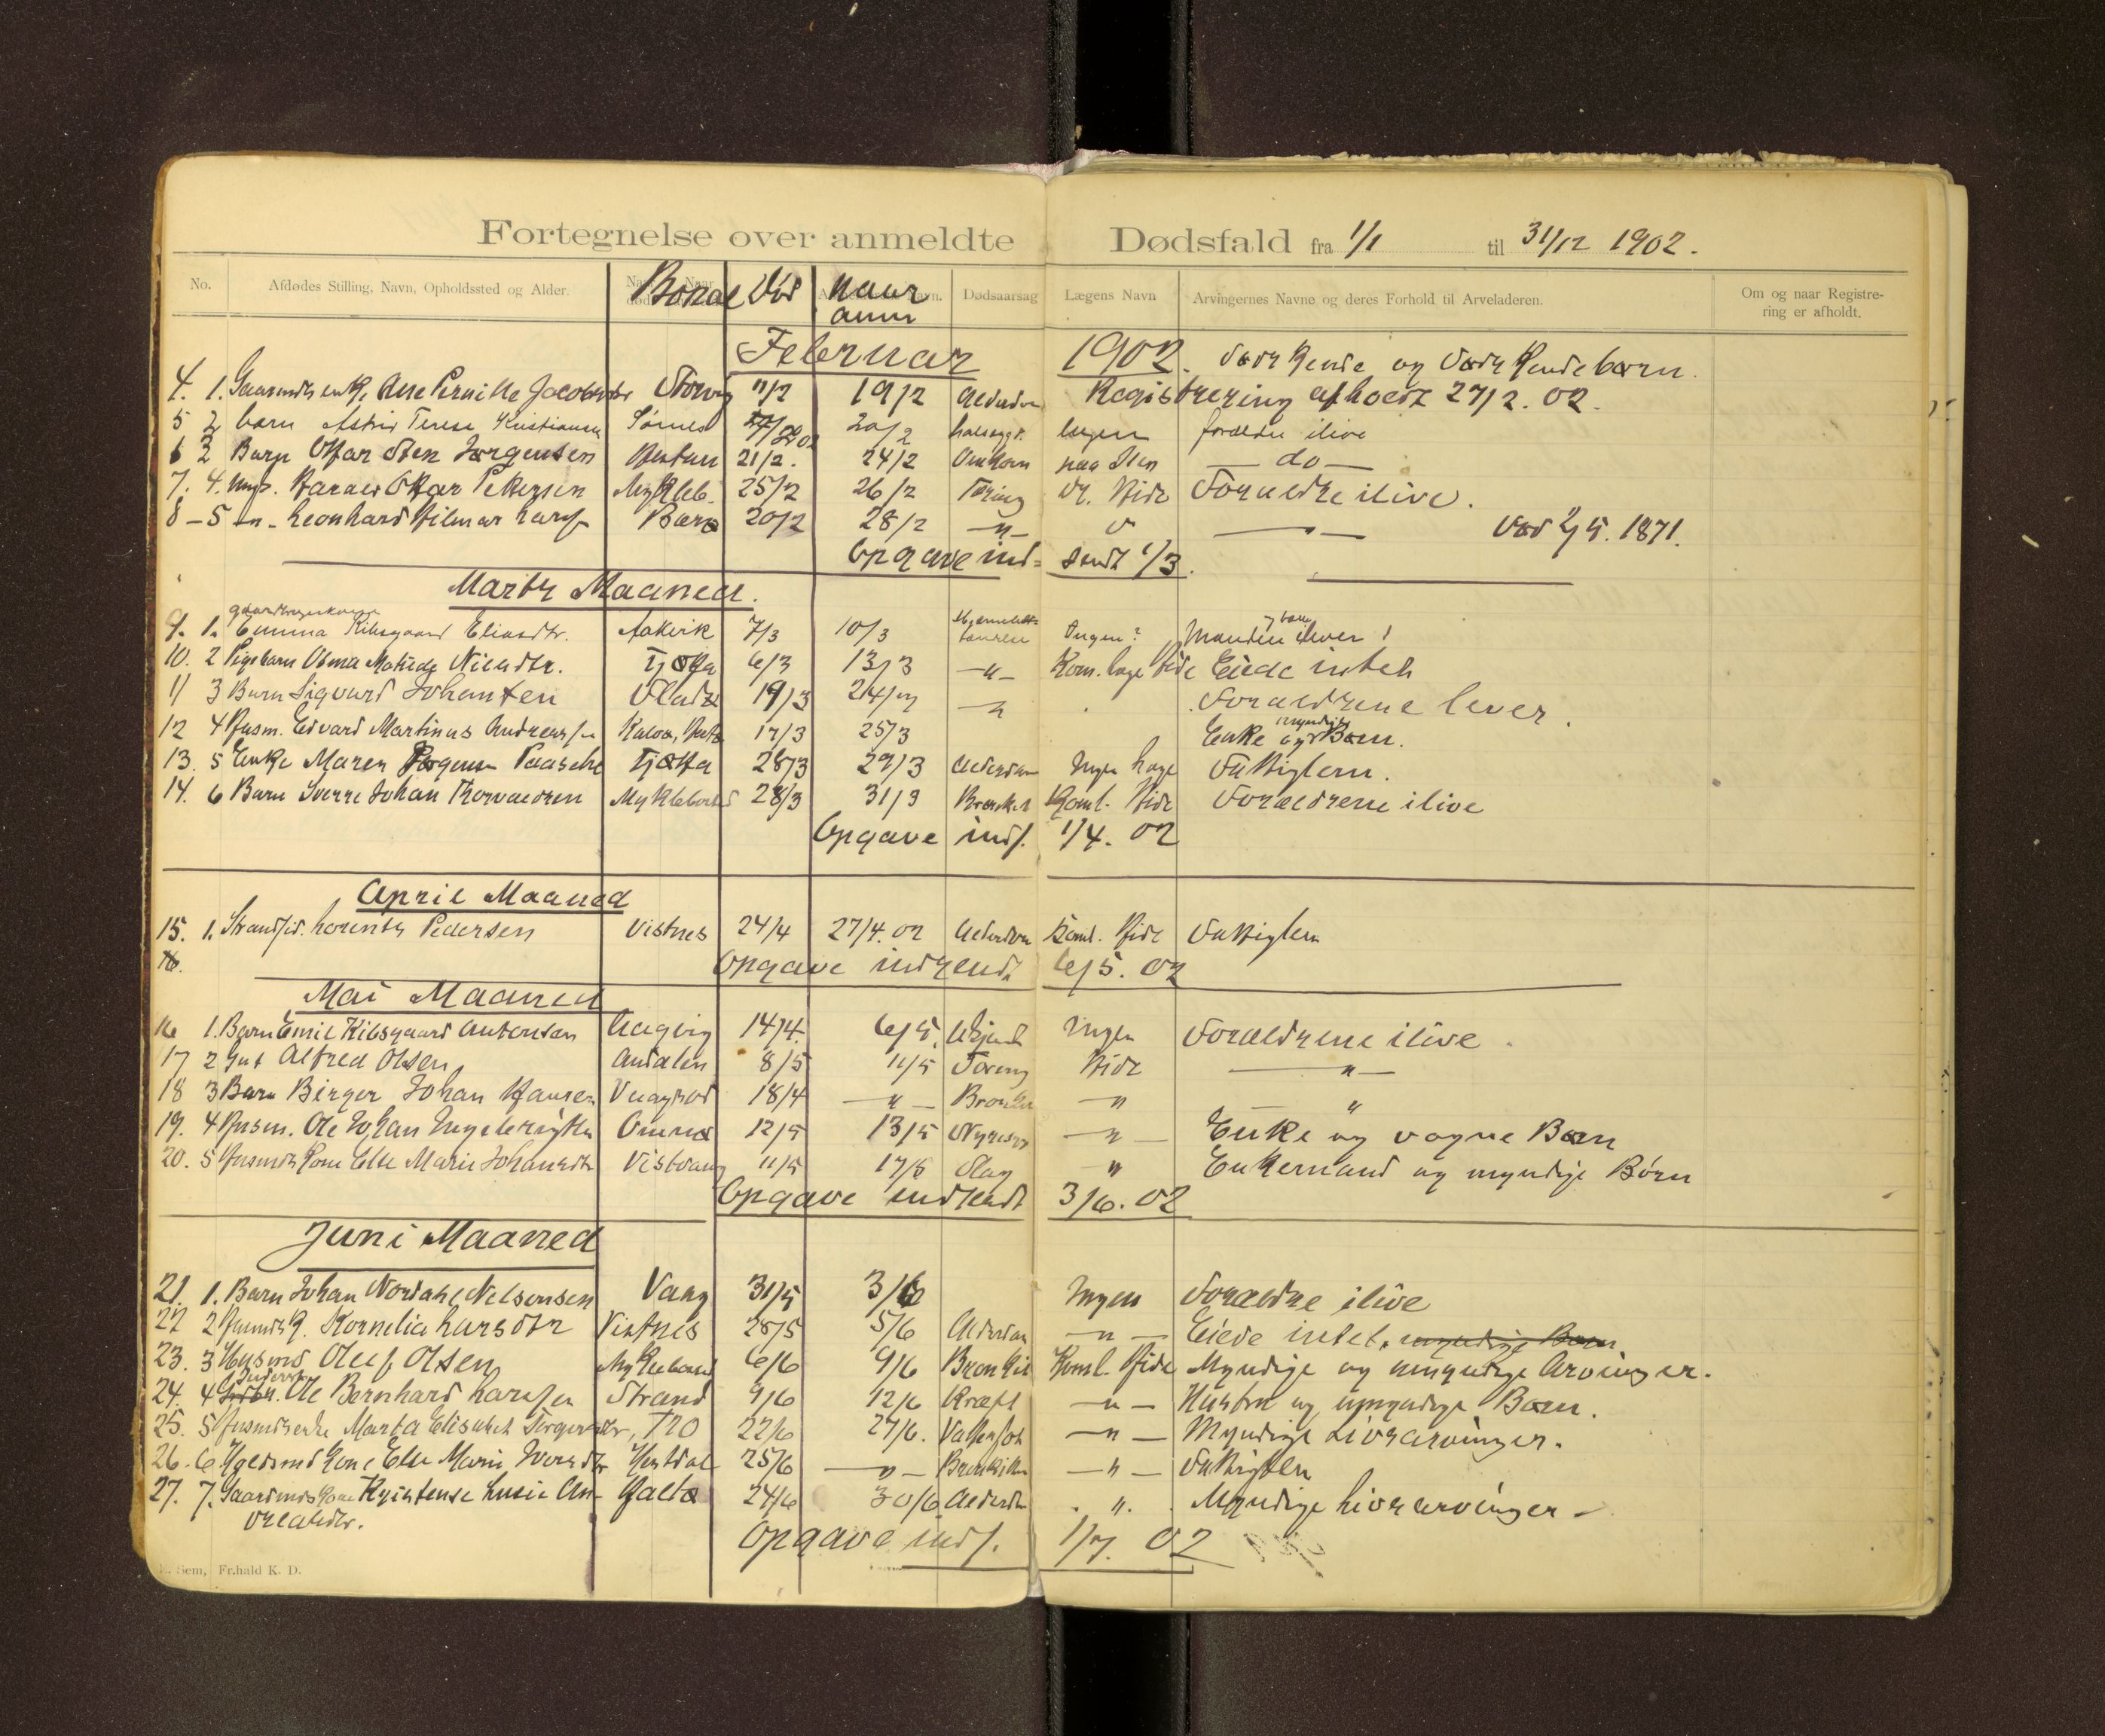 Fortegnelse over anmeldte Dødsfald fra 1/1 til 31/12 1902.
No. Afdødes Stilling, Navn, Opholdssted og Alder. Bopæl Død Naar anm Dødsaarsag Lægens Navn Arvingernes Navne og deres Forhold til Arveladeren. Om og naar Registrering er afholdt.
Februar 1902.
4. 1. Gaardmds enk. Ane Pernille Jacobsdtr 7/2 19/2 Alderdom Registrering afholdt 27/2. 02.
5 2 barn Astrid Terese Kristiansen Sørnes 20/2 lægen forældre ilive
6 3 Barn Otar Sten Jørgensen 21/2. 24/2 — do —
7. 4. Ungk. Harald Otar Petersen Mykleb. 25/2 26/2 Tæring Dr. Hide Forældre ilive.
8 - 5 -"- Leonhard Hilmar Larss Barø 20/2 28/2 —"— — " — Død 2/5. 1871.
Opgave ind= sendt 1/3.
Marts Maaned.
9. 1. Emma Kibsgaard Eliasdtr. Aakvik 7/3 10/3 Ingen? Manden lever !
10. 2 Pigebarn Olma Matilde Nielsdtr. Tjøtta 6/3 13/3 —"— Kom. læge Hide Eiede intet
11 3 Barn Sigvard Johansen Flada 19/3 24/3 —"— Forældrene lever.
12 4 Husm. Edvard Martinus Andreass 17/3 25/3 Enke og myndige Børn.
13. 5 Enke Maren Jørgensen Paasche Tjøtta 28/3 29/3 Alderdom Ingen læge Fattiglem.
14. 6 Barn Sverre Johan Thorvaldsen Myklebost 28/3 31/3 Koml. Hide Forældrene ilive
Opgave inds. 1/4. 02
April Maaned
15. 1. Strands. Lorents Pedersen Vistnes 24/4 27/4. 02 Alderdom Koml. Hide Fattiglem
16. Opgave indsendt 6/5. 02
Mai Maaned
16 1. Barn Emil Kibsgaard Antonsen 14/4. 6/5. Ukjendt Ingen Forældrene ilive.
17 2 Gut Alfred Olsen Andalen 8/5 11/5 Tæring Hide — " —
18 3 Barn Birger Johan Hansen 18/4 —"— —"— "
19. 4 Husm. Ole Johan Ingebrigtsen 12/5 13/5 —"— Enke og voxne Børn
20. 5 Husmds kone Else Marie Johansdtr 11/5 17/5 Slag " Enkemand og myndige Børn
Opgave indsendt 3/6. 02
Juni Maaned
21. 1. Barn Johan Nordahl Nelsensen Vang 31/5 3/6 Ingen Forældre ilive
22 2 Husmdsk. Kornelia Larsdtr Vistnes 28/5 5/6 Alderdom —"— Eiede intet. myndige Børn
23. 3 Husmd Oluf Olsen Myklebost 6/6 9/6 Bronkit Koml. Hide Myndige og umyndige Arvinger.
24. 4 Ole Bernhard Larssen Strand 9/6 12/6 Kræft —"— Hustru og umyndige Børn.
25. 5 Husmdsenke Marta Elisabet Jørgensdtr, Tro 22/6 27/6. Vattersot —"— Myndige Livsarvinger.
26. 6 kone Else Marie Iversdtr 25/6 —"— —"— Fattiglem
27. 7. Gaardmdskone Kristense Lusie An- 24/6 30/6 Alderdom " . Myndige Livsarvinger —
dreasdtr.
Opgave inds. 1/7. 02
Sem, Fr.hald K. D.